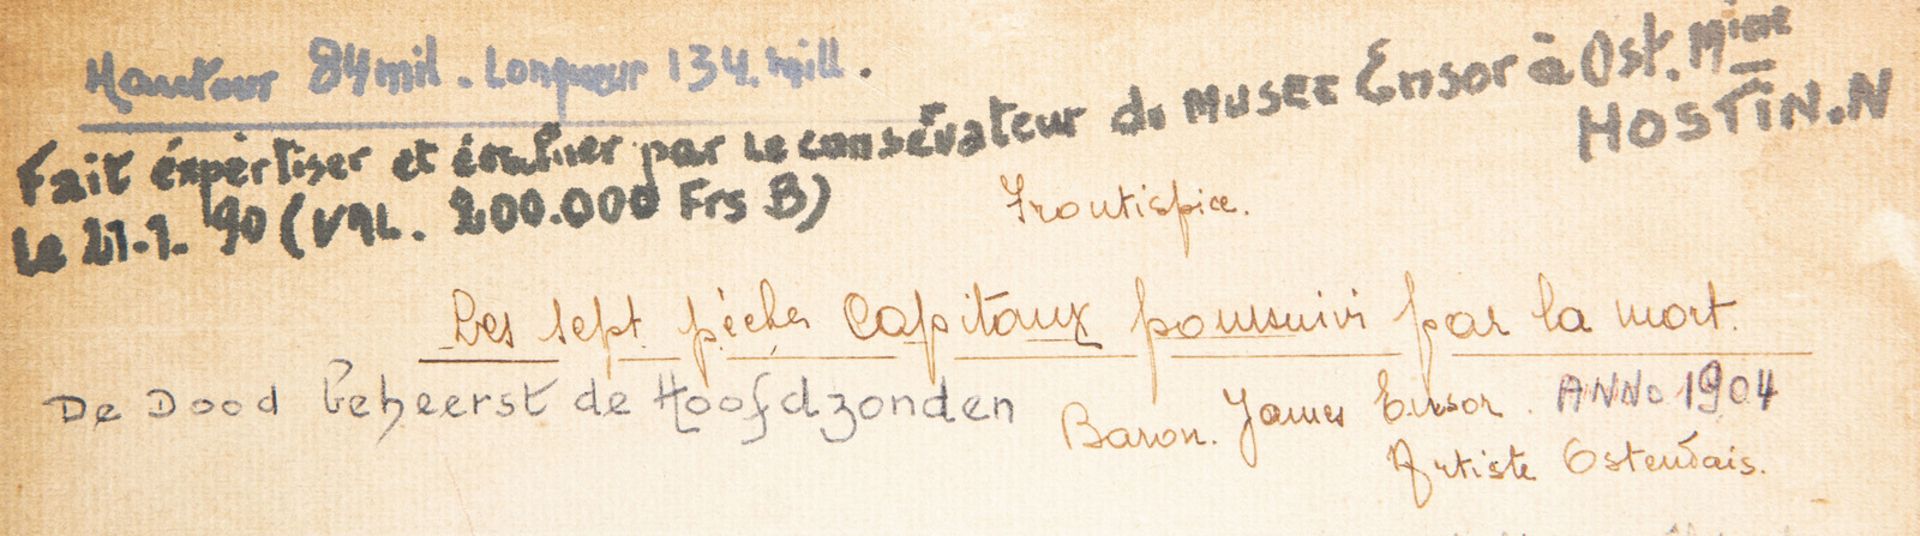 Hauteur 84 mil. Longueur 134. mill.
Fait éxpèrtiser et évaluer par le consérvateur du Musee Ensor à Ost. Mme HOSTIN.N
Le 21.1. 90 (VAL. 200.000 Frs B)
Frontispice.
Les sept pèchés Capitaux poursuivi par la mort.
De Dood beheerst de Hoofdzonden
Baron. James Ensor. ANNO 1904
Artiste Ostendais.